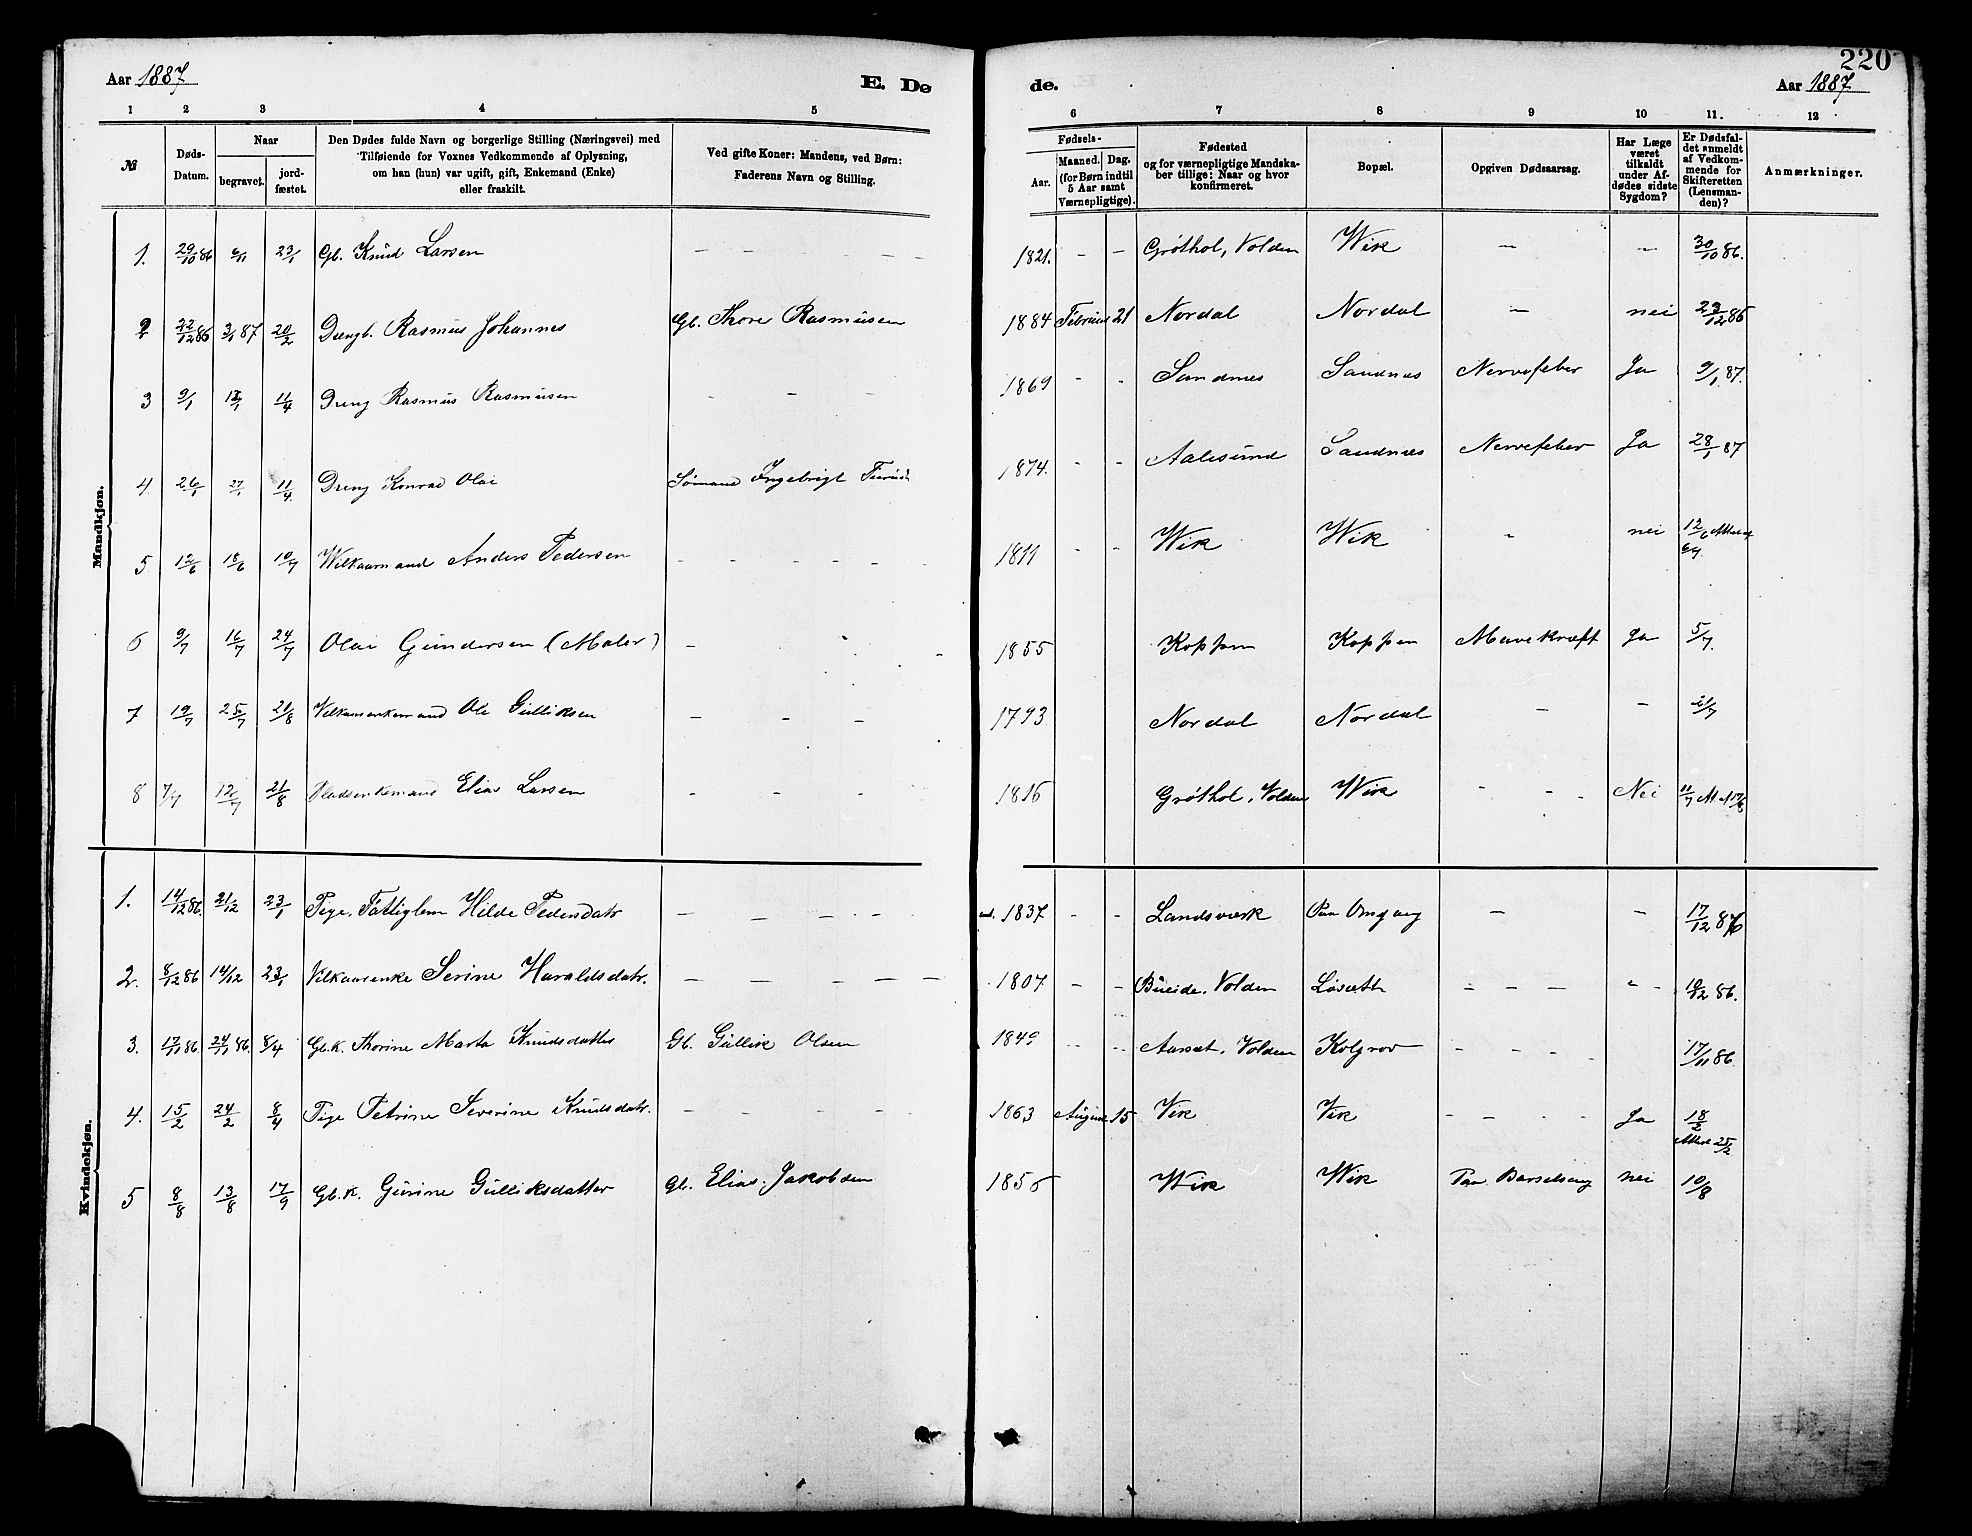 Aar 1887
E. Dø
1 2 3 4 5
№
Døds-
Datum.
Naar
begravet.
jord-
fæstet.
Den Dødes fulde Navn og borgerlige Stilling (Næringsvei) med
Tilføiende for Voxnes Vedkommende af Oplysning,
om han (hun) var ugift, gift, Enkemand (Enke)
eller fraskilt.
Ved gifte Koner: Mandens, ved Børn:
Faderens Navn og Stilling.
Mandkjøn.
1. 29/10 86 6/11 23/1 Gb. Knud Larsen — — — —
2 22/12 86 3/1 87 20/2 Drengb. Rasmus Johannes Gb. Thore Rasmusen
3 9/1 13/1 11/4 Dreng Rasmus Rasmusen - - -
4. 26/1 27/1 11/4 Dreng Konrad Olai Sømand Ingebrigt
5 12/6 18/6 10/7 Wilkaarmand Anders Pedersen - - - - - -
6 9/7 16/7 24/7 Olai Gundersen (Maler) -
7 19/7 25/7 21/8 Ole Gulliksen - - -
8 7/7 12/7 21/8 Pladsenkemand Elias Larsen - - -
Kvindekjøn.
1. 14/12 86. 21/12 23/1 Pige, Fattiglem Hilde Pedersdatr - - - - -
2. 8/12 86 14/12 23/1 Vilkaarsenke Serine Haraldsdatr. - - - - -
3. 17/11 86. 24/11 86. 8/4 Gb.K. Thorine Marta Knudsdatter Gb. Gullik Olsen
4. 15/2 24/2 8/4 Pige Petrine Severine Knudsdatr. - - - -
5 8/8 13/8 17/9 Gb.K. Gurine Gulliksdatter Gb. Elias Jakobsen
220
de.
Aar 1887
6 7 8 9 10 11. 12
Fødsels-
Aar.
Maaned. Dag.
(for Børn indtil
5 Aar samt
Værnepligtige).
Fødested
og for værnepligtige Mandska-
ber tillige: Naar og hvor
konfirmeret.
Bopæl.
Opgiven Dødsaarsag.
Har Læge
været
tilkaldt
under Af-
dødes sidste
Sygdom?
Er Dødsfal-
det anmeldt
af Vedkom-
mende for
Skifteretten
(Lensman-
den)?
Anmærkninger.
1821. - - Grøthol, Volden Wik — — 30/10 86.
1884 21 Nordal Nordal — nei 23/12 86
1869 - - Sandnes Sandnes Nervefeber Ja 9/1 87.
1874. - - Aalesund Sandnes Nervefeber Ja 28/1 87
- - Wik Wik - nei 12/6
1855 Koppen Koppen Mavekræft Ja 5/7.
1793 Nordal Nordal - - 21/7
1816 Grøthol, Volden Wik - - - Nei 11/7
1837 - - Landsværk Paa Omgang — — 17/12 86
1807 - - Bueide, Volden Løsætt - - - - - 86.
1849 - - Aarsæt, Volden Kolgrov - - - - 17/11 86.
1863 August 15 Vik Vik - - - - Ja 18/2
25/2
1856 Wik Wik Paa Barselseng nei 10/8